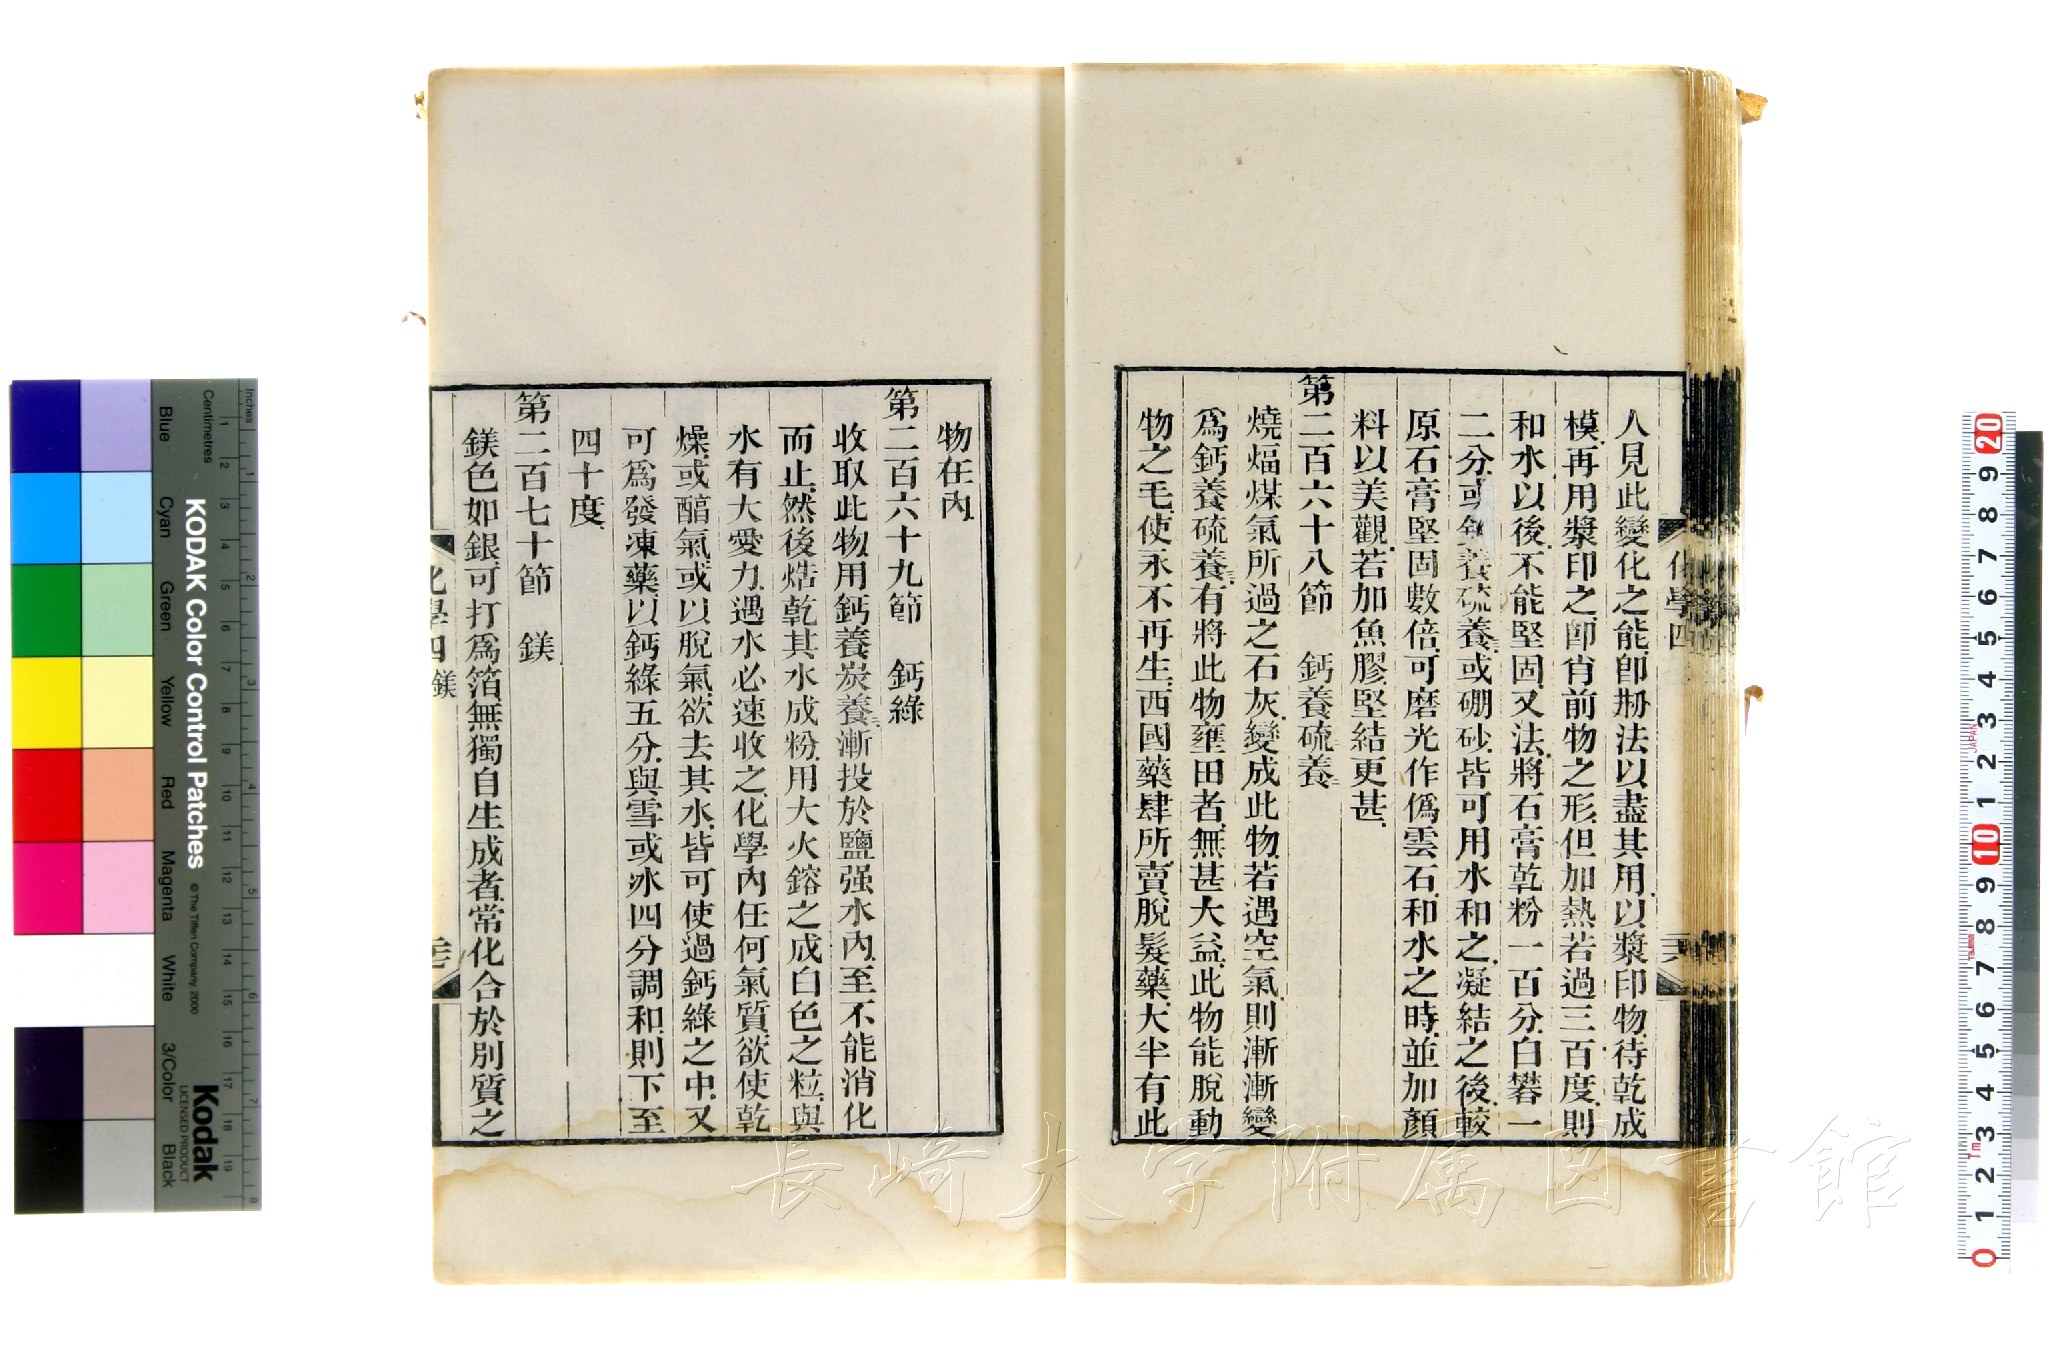 人見此變化之能卽捌法以盡其用以漿印物待乾成
模再用漿印之卽肖前物之形但加熱若過三百度則
和水以後不能堅固又法將石膏乾粉一百分白礬一
二分或 養硫養三或硼砂皆可用水和之凝結之後較
原石膏堅固數倍可磨光作僞雲石和水之時並加顏
料以美觀若加魚膠堅結更甚
第二百六十八節 鈣養硫養二
燒煏煤氣所過之石灰變成此物若遇空氣則漸漸變
爲鈣養硫養三有將此物壅田者無甚大益此物能脫動
物之毛使永不再生西國藥肆所賣脫髮藥大半有此
化學四
物在內
第二百六十九節 鈣綠
收取此物用鈣養炭養二漸投於鹽强水內至不能消化
而止然後熯乾其水成粉用大火鎔之成白色之粒與
水有大愛力遇水必速收之化學內任何氣質欲使乾
燥或醕氣或以脫氣欲去其水皆可使過鈣綠之中又
可爲發凍藥以鈣綠五分與雪或冰四分調和則下至
四十度
第二百七十節 鎂
鎂色如銀可打爲箔無獨自生成者常化合於別質之
化學四 鎂
長崎大学附属図書館
KODAK Color Control Patches
© The Tiffen Company, 2000
Kodak
LICENSED PRODUCT
Inches
Centimetres
Blue
Cyan
Green
Yellow
Red
Magenta
White
3/Color
Black
JAPAN